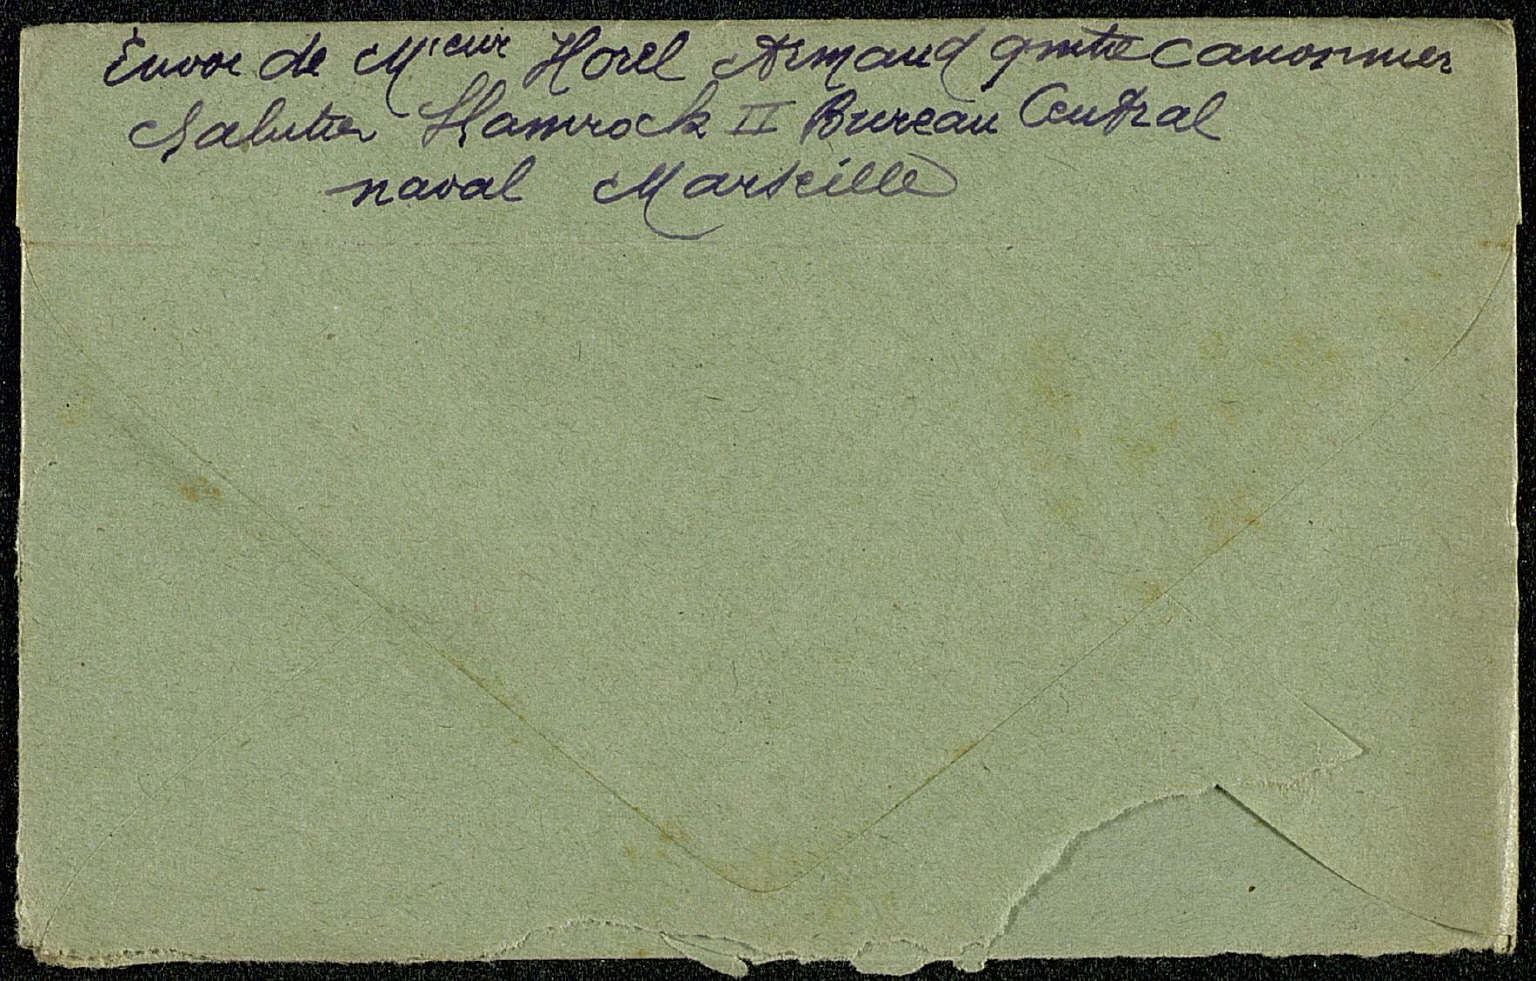 Envoi de Mieur Horel Armand qmtre canonnier
Chalutier Shamrock II Bureau Central
naval Marseille